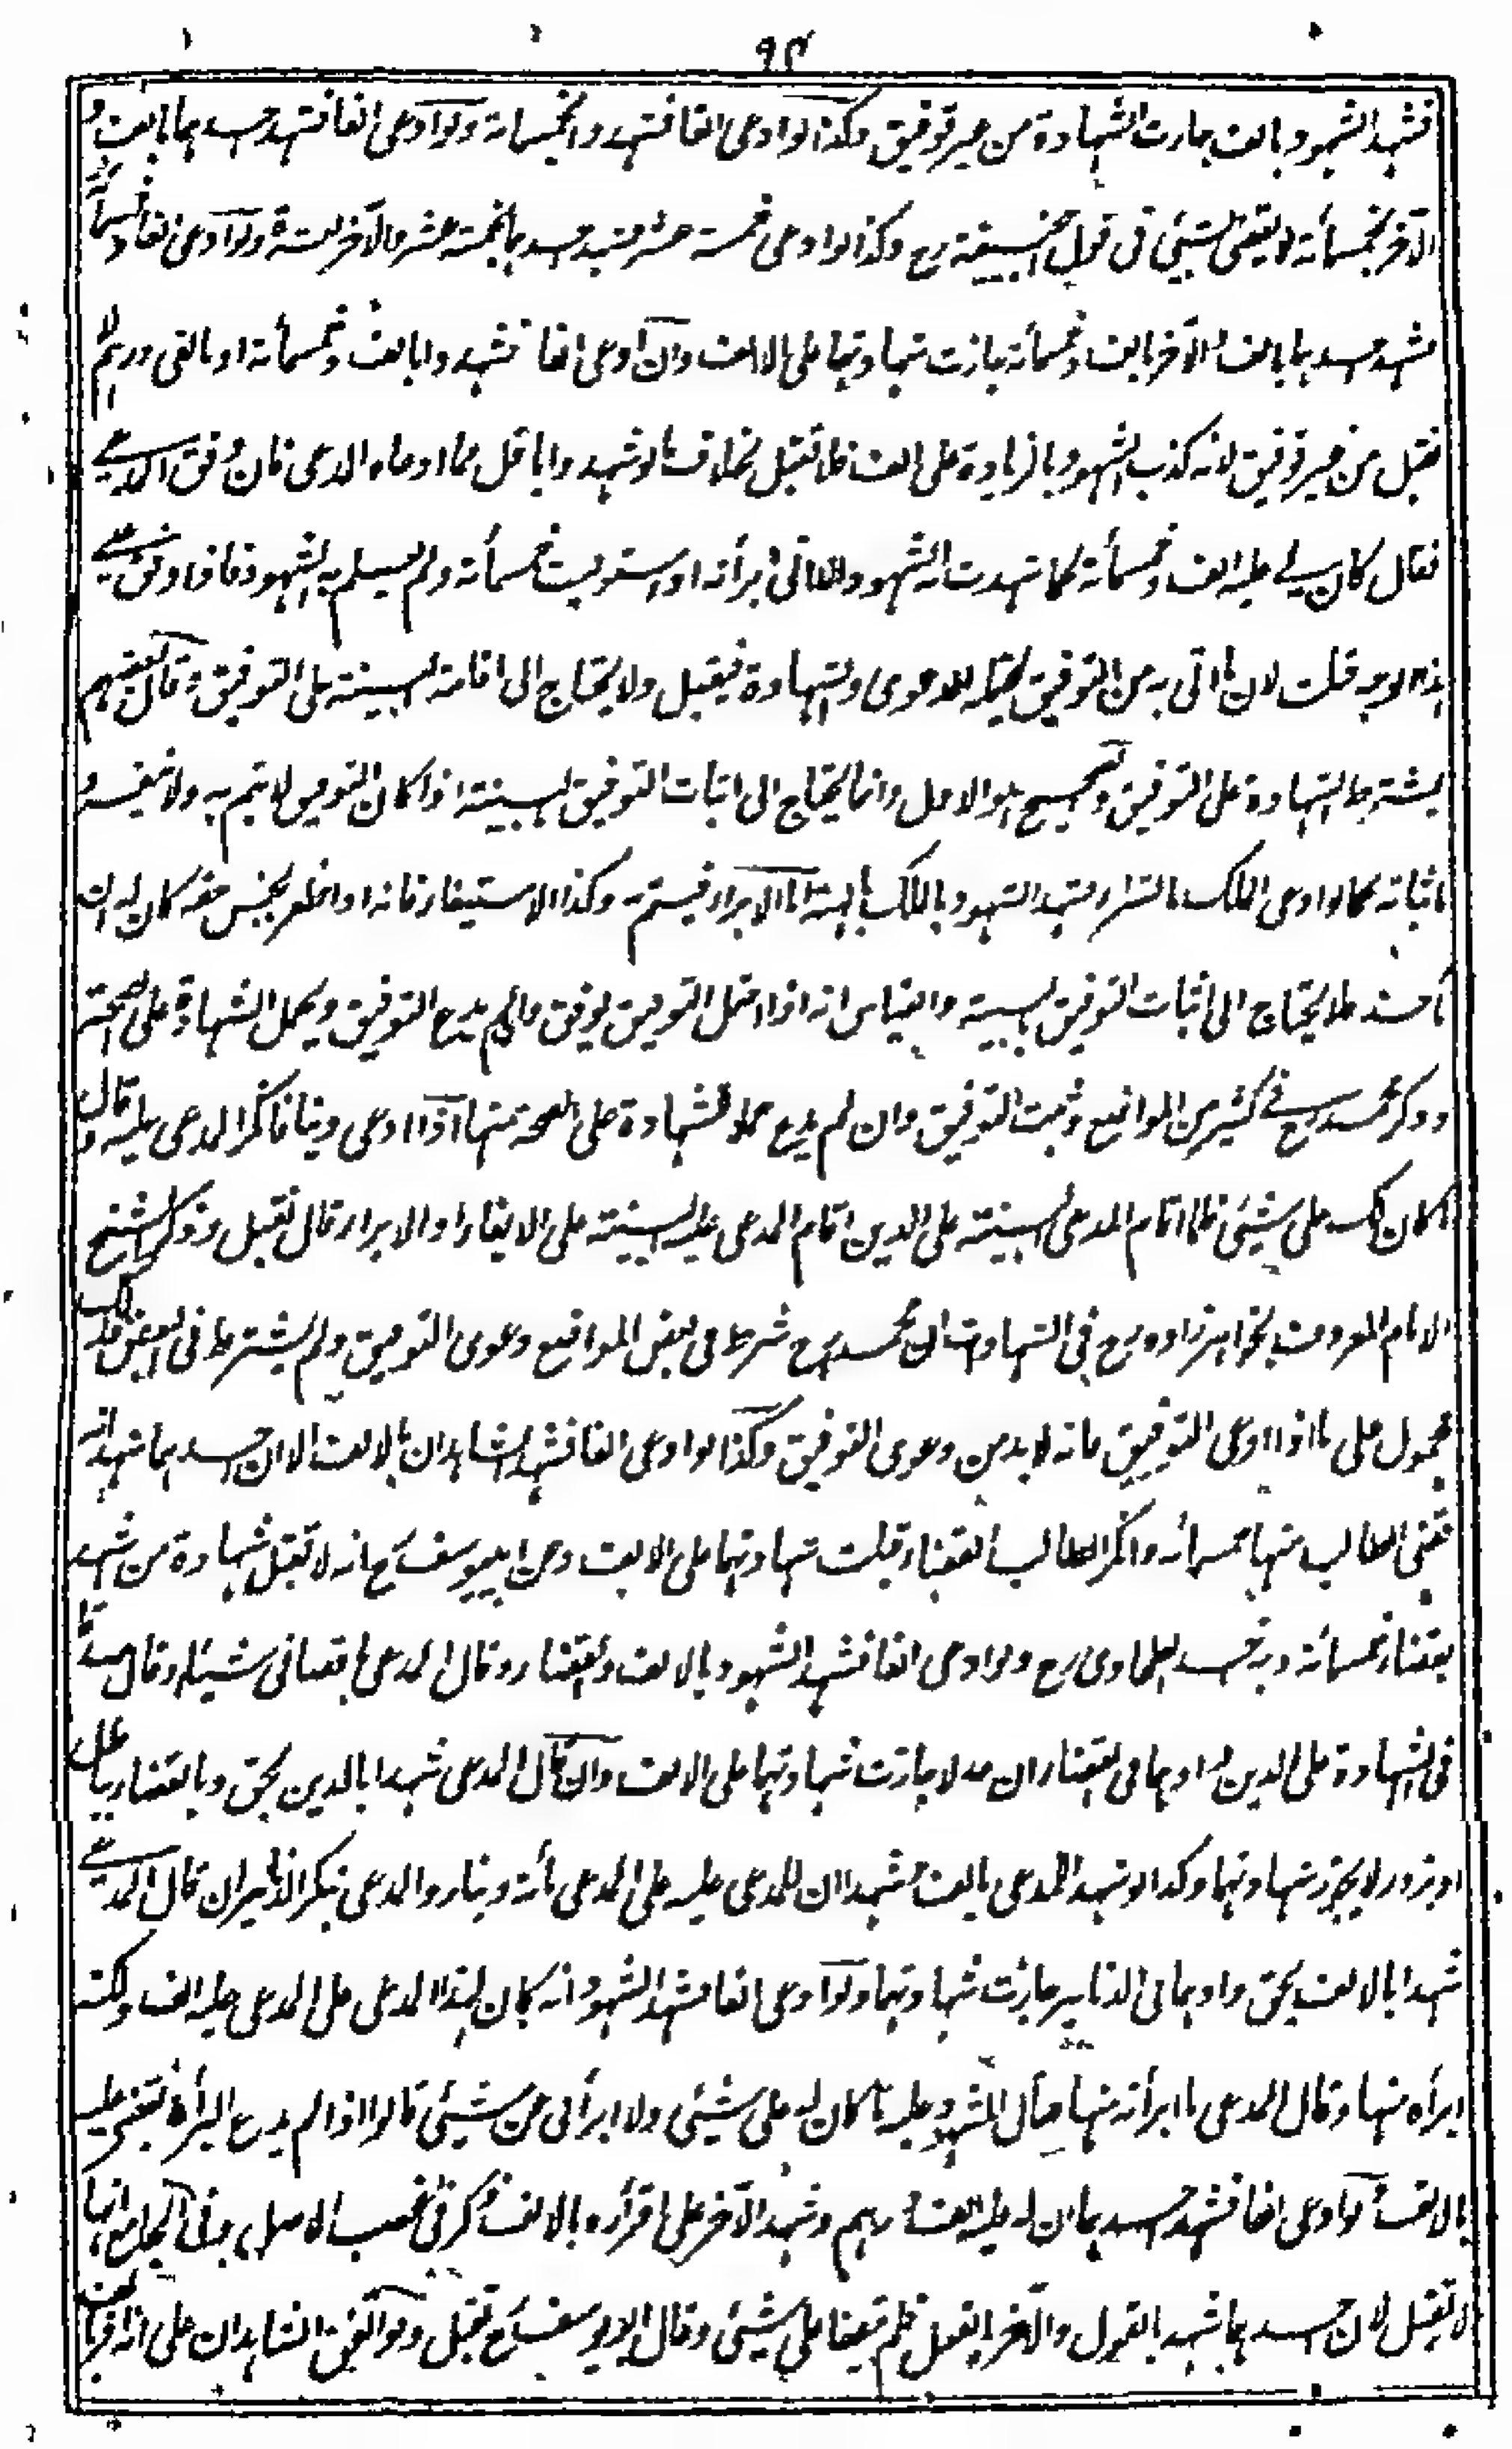 ٩٣
فشهد الشهود بالف جازت الشهادة من غير توفيق وكذا لو ادعى الفا فشهدوا بخمسمائة ولو ادعى الفا فشهد احدهما بالف و
الآخر بخمسمائة لا يقضى بشيئ فى قول ابيحنيفة رح وكذا لو ادعى خمسة عشر فشهد احدهما بخمسة عشر والآخر بستة ولو ادعى الفا وخمسمأة
فشهد احدهما بالف والآخر بالف وخمسمأة جازت شهادتهما على الالف وان ادعى الفا فشهدوا بالف وخمسمأة او بالفى درهم لا
تقبل من غير توفيق لانه كذب الشهود بالزيادة على الف فلا تقبل بخلاف ما لو شهدوا باقل مما ادعاه المدعى فان وفق المدعى
فقال كان لى عليه الف وخمسمأة كما شهدت به الشهود الا انى ابرأته او استوفيت خمسمأة ولم يعلم به الشهود فاذا وفق على
هذا الوجه قبلت لان ما اتى به من التوفيق يحتمله الدعوى والشهادة فيقبل ولا يحتاج الى اقامة البينة على التوفيق وقال بعضهم
يشترط الشهادة على التوفيق والصحيح هو الاول وانما يحتاج الى اثبات التوفيق بالبينة اذا كان التوفيق لا يتم به ولا ينفرد
باثباته كما لو ادعى الملك بالشراء فشهد الشهود بالملك بالهبة اما الابراء فيتم به وكذا الاستيفاء فانه اذا ظفر بجنس حقه كان له ان
يأخذ فلا يحتاج الى اثبات التوفيق بالبينة والقياس انه اذا احتمل التوفيق يوفق وان لم يدع التوفيق ويحمل الشهادة على الصحة
وذكر محمد رح فى كثير من المواضع وثبت التوفيق وان لم يدع حملا للشهادة على الصحة منها اذا ادعى دينا فانكر المدعى عليه وقال
ما كان لك على شيئ فلما اقام المدعى البينة على الدين اقام المدعى عليه البينة على الايفاء او الابراء قال تقبل وذكر الشيخ
الامام المعروف بخواهرزاده رح فى الشهادات ان محمدا رح شرط فى بعض المواضع دعوى التوفيق ولم يشترط فى البعض وذلك
محمول على ما اذا ادعى التوفيق فانه لابد من دعوى التوفيق وكذا لو ادعى الفا فشهد الشاهدان بالالف الا ان احدهما شهد انه
قضى الطالب منها خمسمأئة وانكر الطالب القضاء قبلت شهادتهما على الالف وعن ابييوسف رح انه لا تقبل شهادة من شهد
بقضاء خمسمائة وبه اخذ الطحاوى رح ولو ادعى الفا فشهد الشهود بالالف والقضاء وقال المدعى ما قضانى شيئا وقال صدقا
فى الشهادة على الدين واوهما فى القضاء ان عدلا جازت شهادتهما على الالف وان قال المدعى شهدا بالدين بحق وبالقضاء بباطل
او بزور لا يجوز شهادتهما وكذا لو شهدا للمدعى بالف وشهدا ان للمدعى عليه على المدعى مأئة دينار والمدعى ينكر الدنانير ان قال المدعى
شهدا بالالف بحق واوهما فى الدنانير جازت شهادتهما ولو ادعى الفا فشهد الشهود انه كان لهذا المدعى على المدعى عليه الف ولكنه
ابرأه منها وقال المدعى ما ابرأته منها وقال المشهود عليه ما كان له على شيئ ولا ابرأنى عن شيئ قالوا اذا لم يدع البرأة يقضى عليه
بالالف ولو ادعى الفا فشهد احدهما ان له عليه الف درهم وشهد الآخر على اقراره بالالف ذكر فى غصب الاصل وفى الجامع انها
لا تقبل لان احدهما شهد بالقول والآخر بالفعل فلم يتفقا على شيئ وقال ابو يوسف رح تقبل ولو اتفق الشاهدان على انه اقر بالف